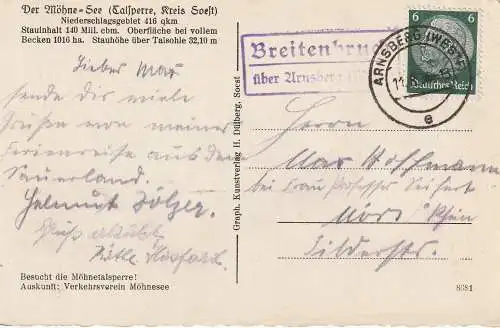 Der Möhne-See (Talsperre, Kreis Soest)
Niederschlagsgebiet 416 qkm
Stauinhalt 140 Mill. cbm. Oberfläche bei vollem
Becken 1016 ha. Stauhöhe über Talsohle 32,10 m
Lieber Max
sende dir viele
Grüße von meiner
Ferienreise aus dem
Sauerland.
Helmut
Gruß
Besucht die Möhnetalsperre!
Auskunft: Verkehrsverein Möhnesee
Graph. Kunstverlag H. Dülberg, Soest
Breitenbruch
über Arnsberg
ARNSBERG (WESTF)
e
6 6
Deutsches Reich
Herrn
Max Hoffmann
bei Frau Professor
Mörs Rhein
8081